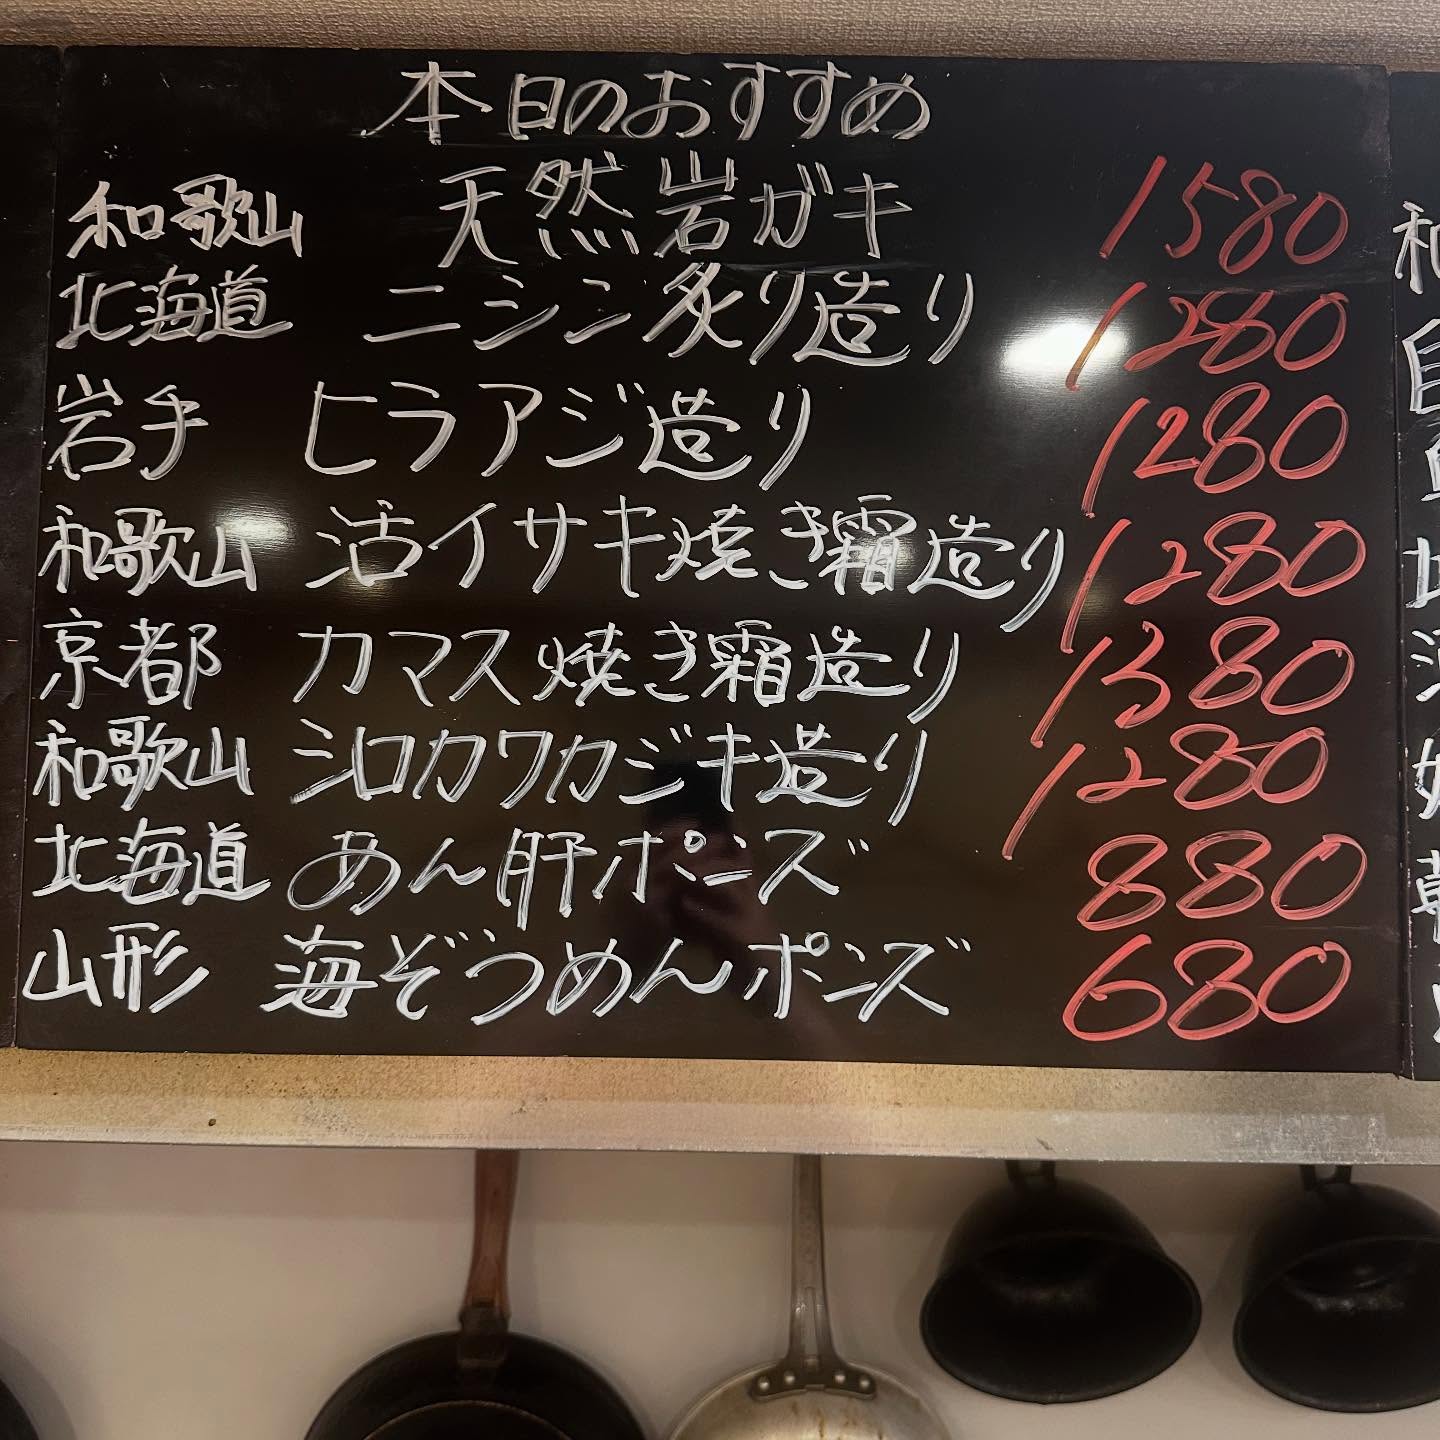 本日のおすすめ
和歌山 天然岩ガキ 1580
北海道 ニシン炙り造り 1280
岩手 ヒラアジ造り 1280
和歌山 活イサキ焼き霜造り 1280
京都 カマス焼き霜造り 1380
和歌山 シロカワカジキ造り 1280
北海道 あん肝ポンズ 880
山形 海ぞうめんポンズ 680